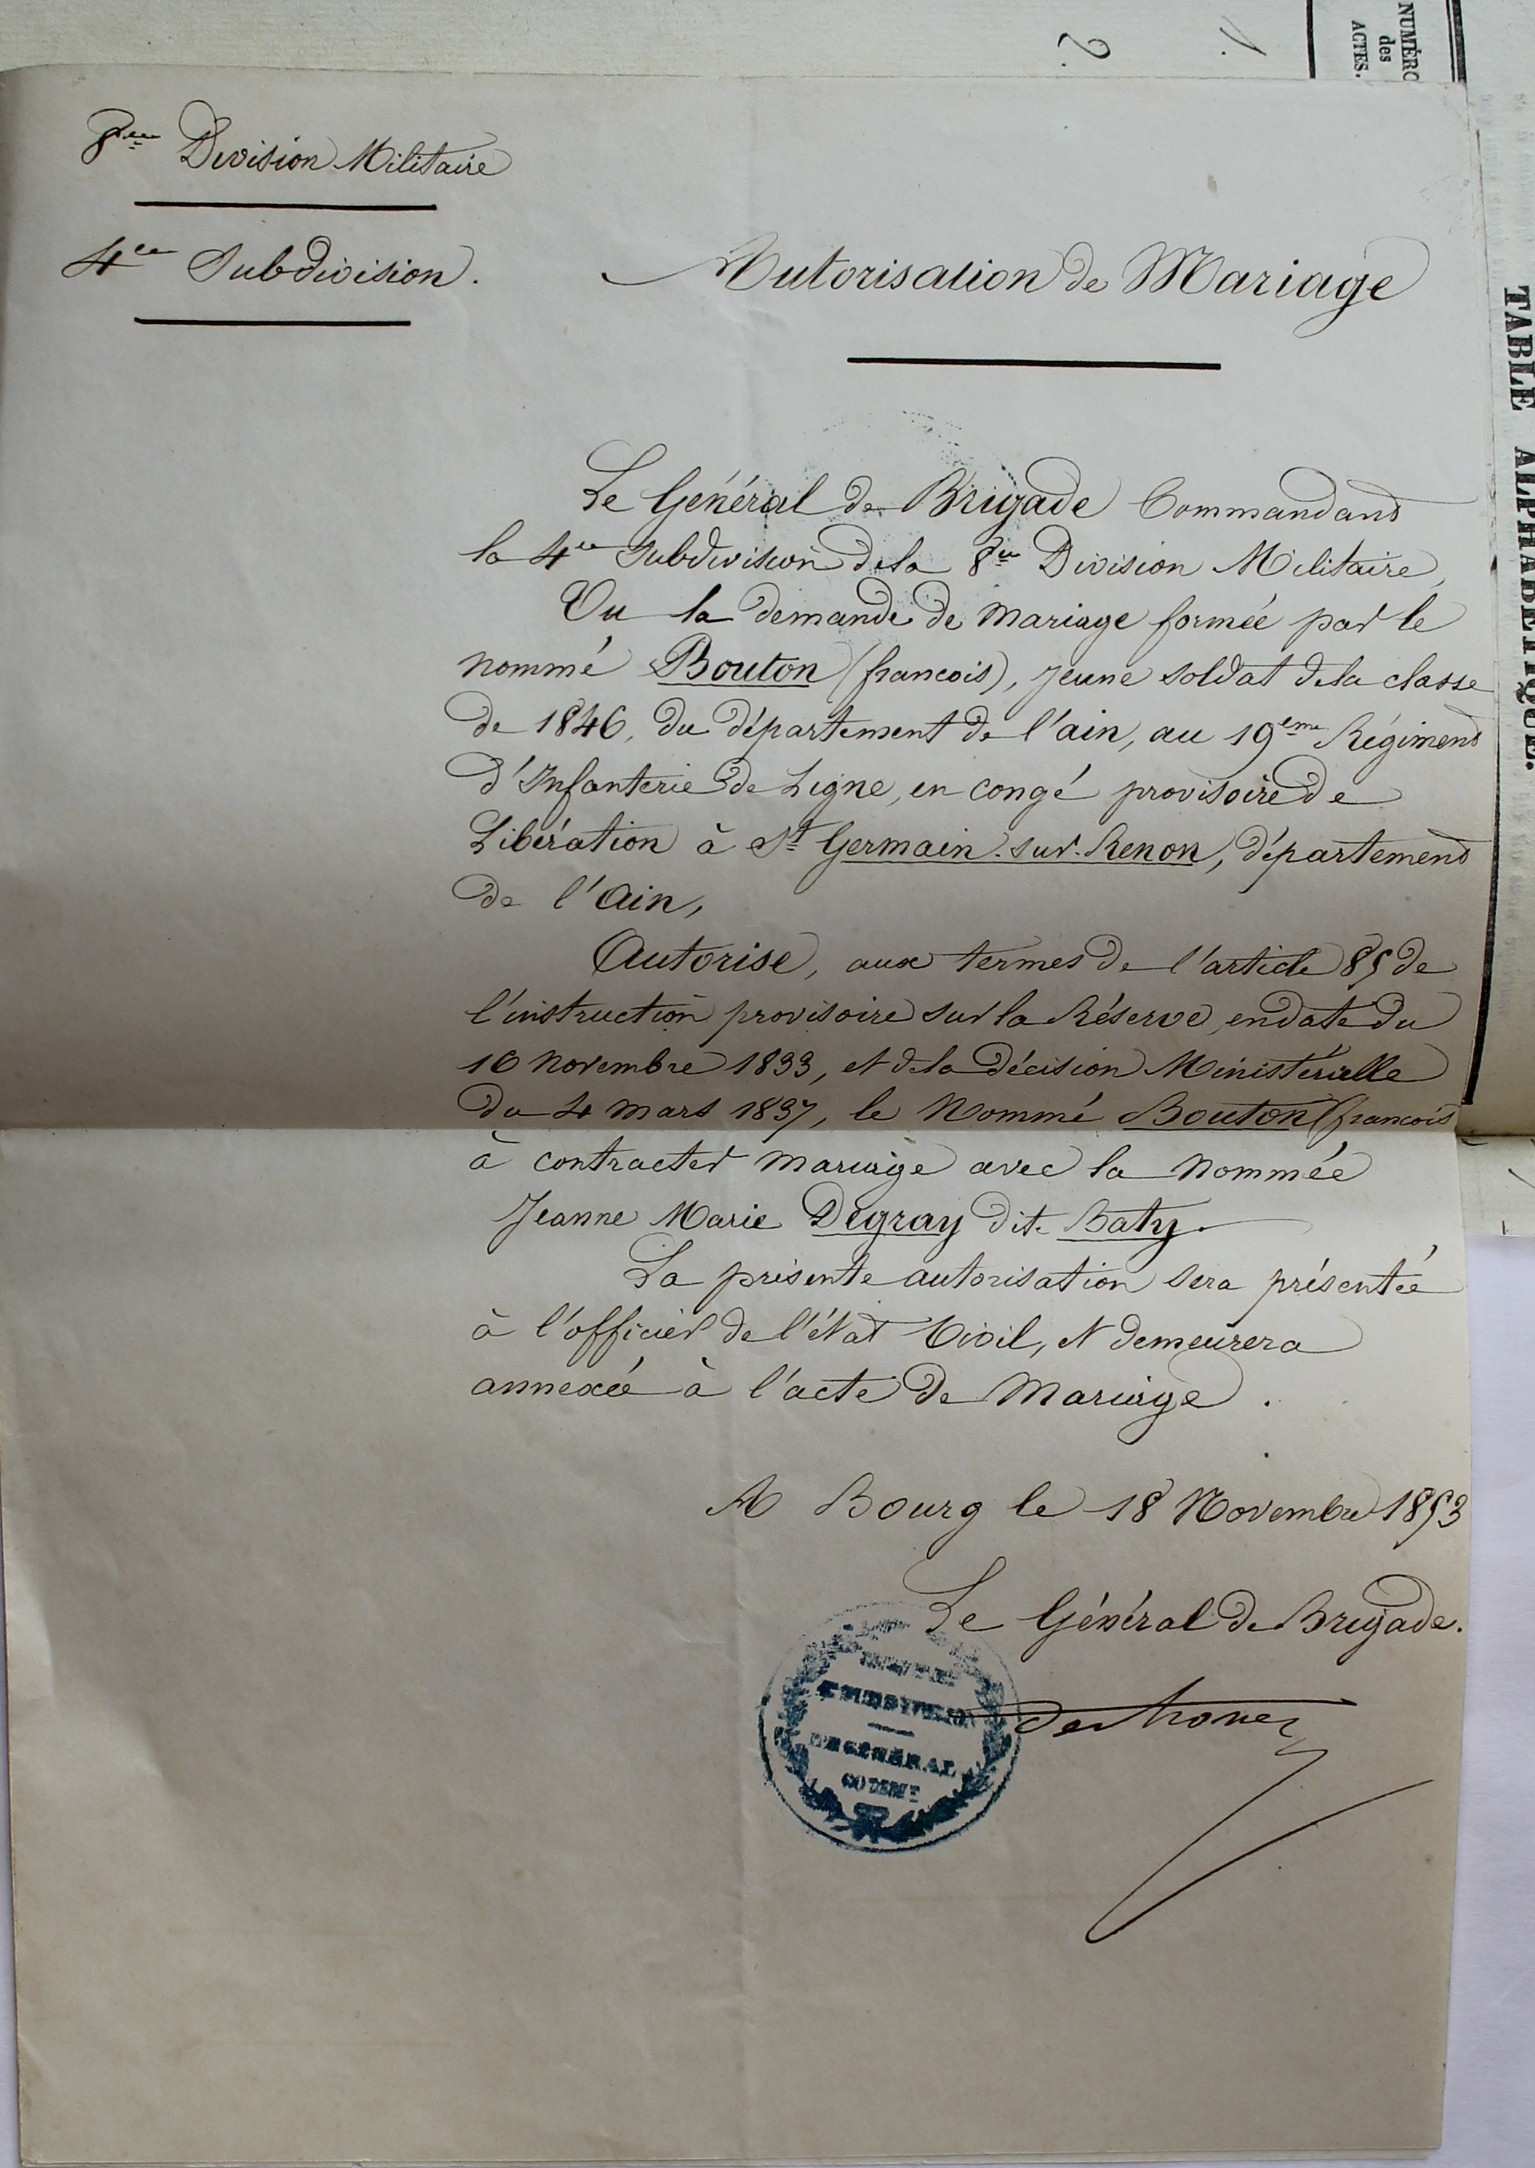 NUMÉRO
des
ACTES.
1.
2.
TABLE ALPHABÉTIQUE.
8me Division Militaire
4me Subdivision.
Autorisation de Mariage
Le Général de Brigade Commandant
la 4me Subdivision de la 8me Division Militaire,
Vu la demande de mariage formée par le
nommé Bouton (francois), jeune soldat de la classe
de 1846, du département de l'ain, au 19eme Régiment
d'Infanterie de Ligne, en congé provisoire de
Libération à St Germain-sur-Renon, département
de l'Ain,
Autorise, aux termes de l'article 85 de
l'instruction provisoire sur la Réserve, en date du
16 novembre 1833, et de la décision Ministérielle
du 4 mars 1837, le Nommé Bouton (francois
à contracter mariage avec la nommée
Jeanne Marie Degray dit Baty.
La présente autorisation sera présentée
à l'officier de l'état Civil, et demeurera
annexée à l'acte de Mariage.
A Bourg le 18 Novembre 1853
Le Général de Brigade.
4E SUBDIVISION
LE GÉNÉRAL
COMMT